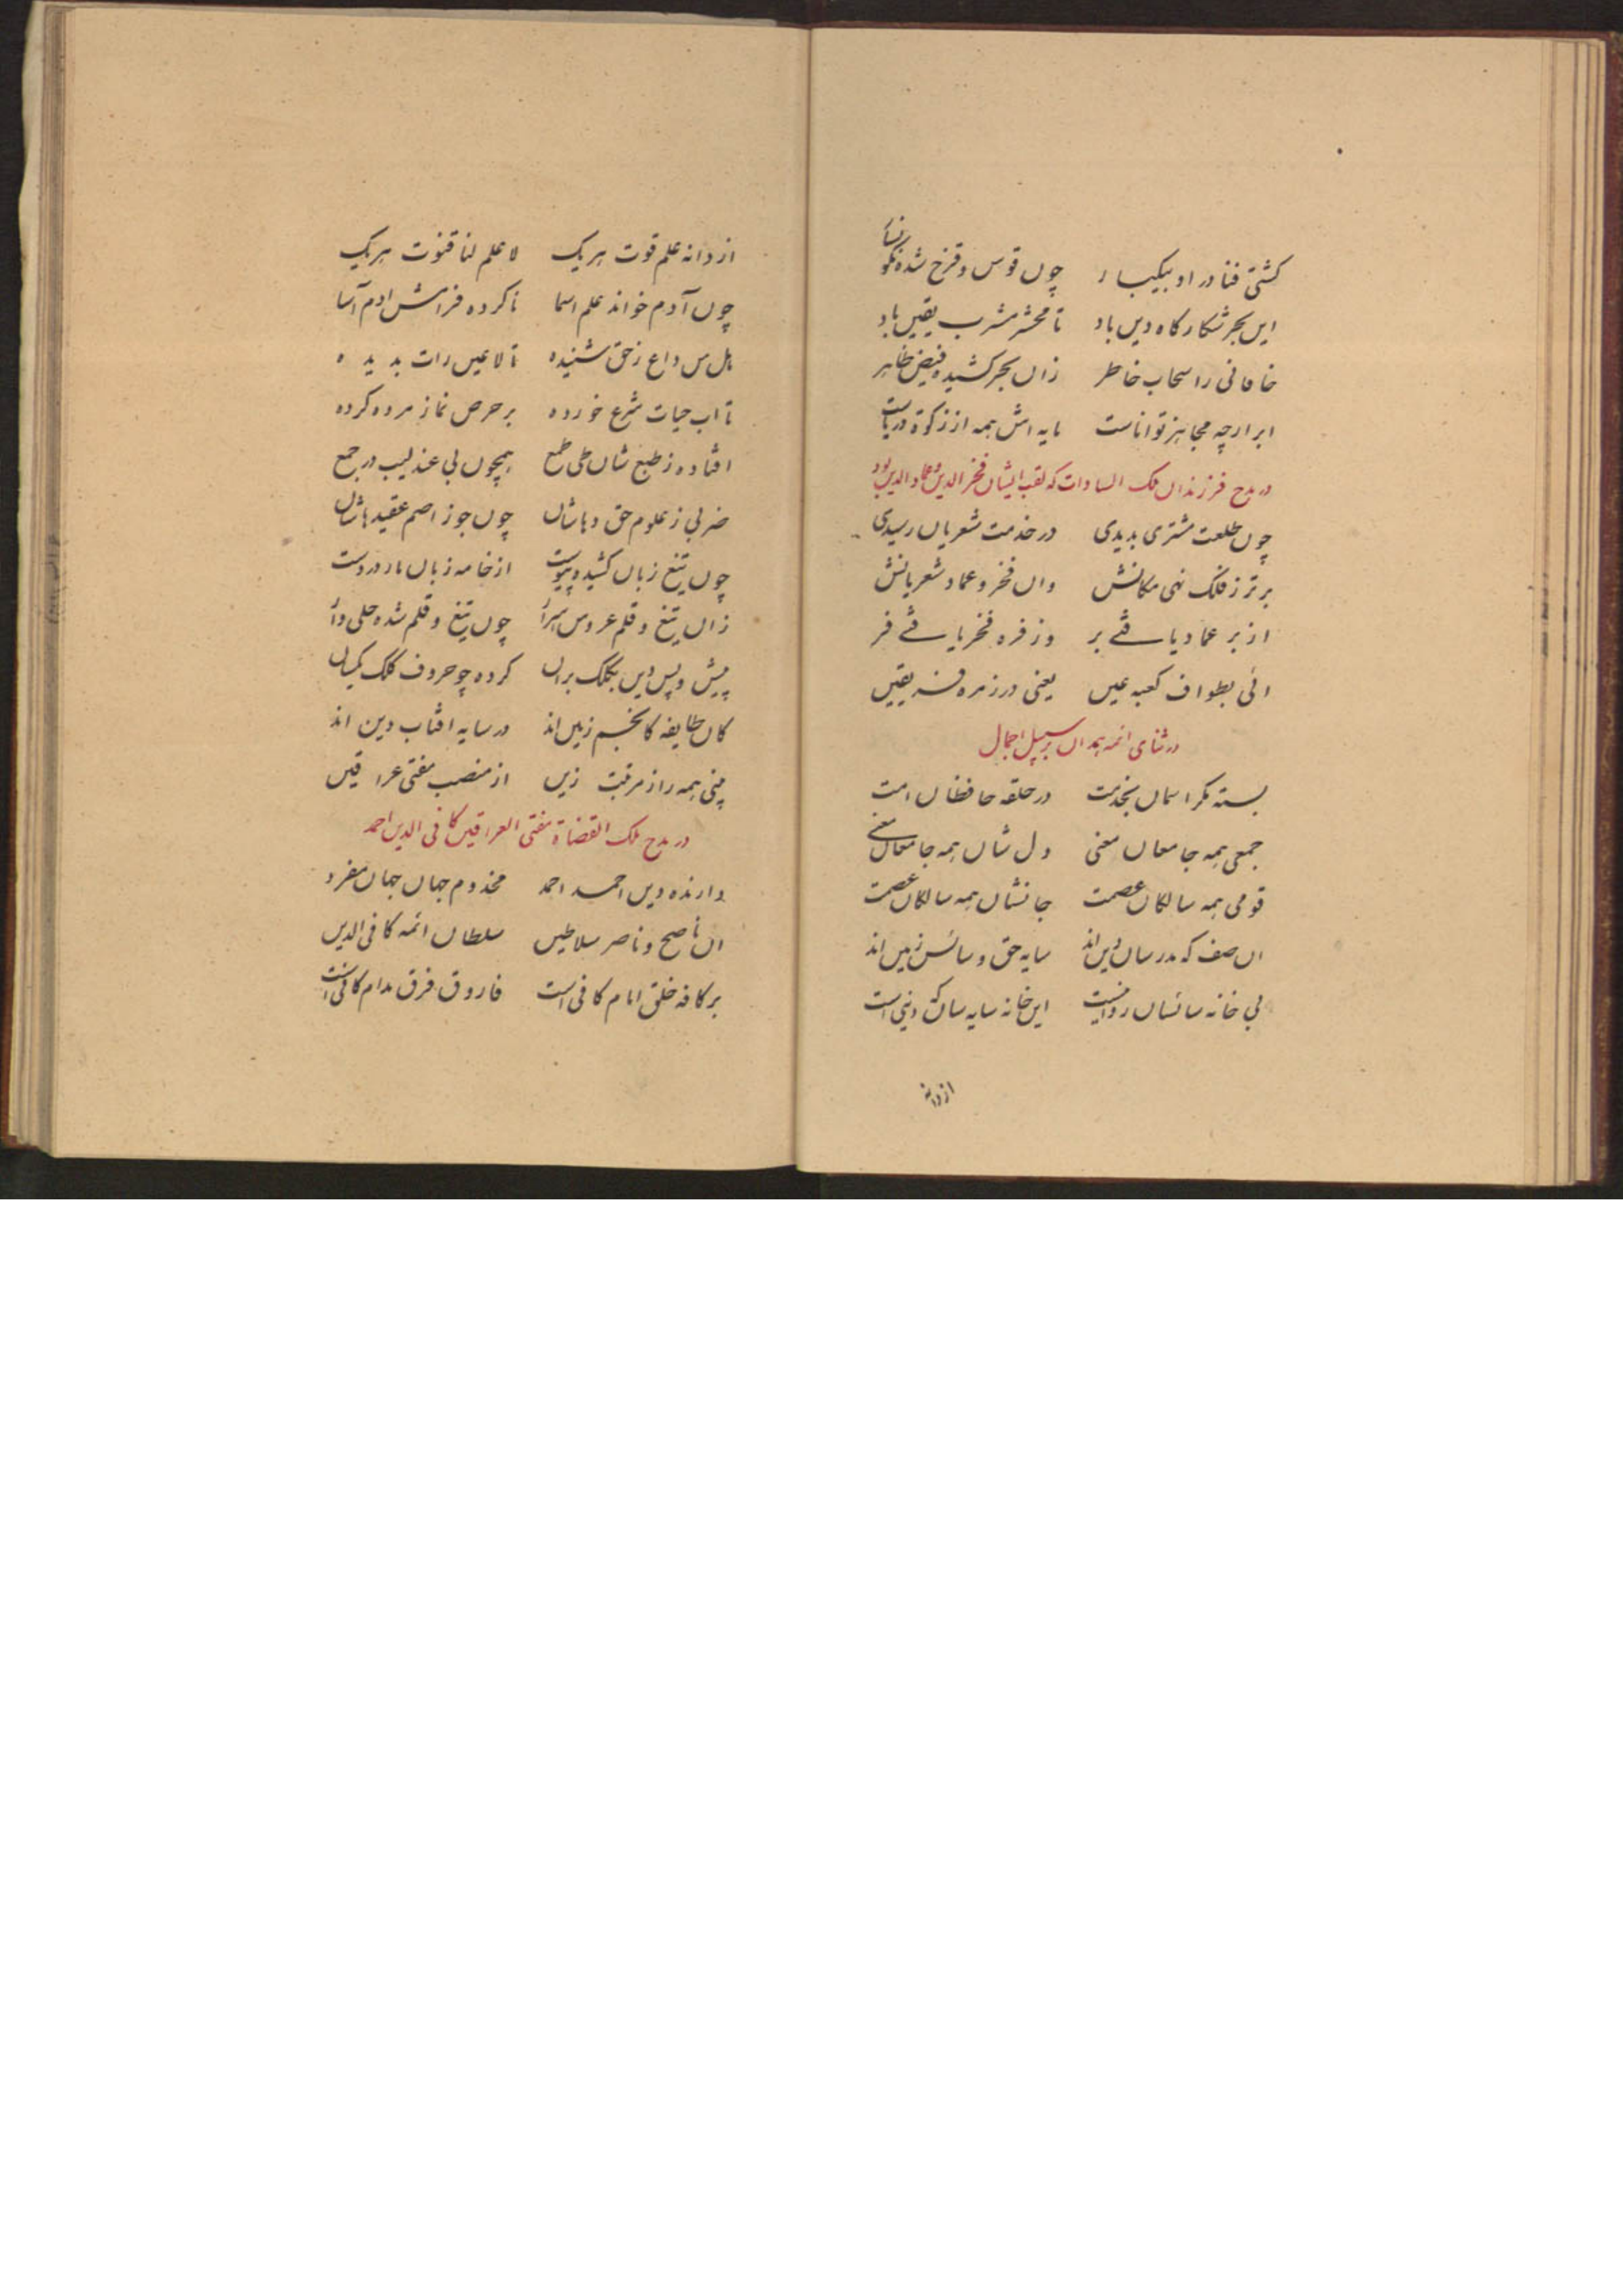 کشتی فنا در او بیکبار چوں قوس و قزح شده نگونسار
ایں بحر شکارکاه دیں باد تا محشر مشرب یقیں باد
خاقانی را سحاب خاطر زاں بحر کشیده فیض ظاهر
ابر ارچه مجاهز تواناست مایه اش همه از زکوة دریاست
در مدح فرزنداں ملک السادات که لقب ایشاں فخر الدین و عماد الدین بود
چوں طلعت مشتری بدیدی در خدمت شعریاں رسیدی
برتر ز فلک نهی مکانش واں فخر و عماد شعریانش
از بر عماد یافتے بر وز فره فخر یافتے فر
ائی بطواف کعبه عیں یعنی در زمره فریقیں
در ثنای ائمه همداں بر سبیل اجمال
بسته کمر اسماں بخدمت در حلقه حافظاں امت
جمعی همه جامعاں معنی دل شاں همه جامعاں معنے
قومی همه سالکاں عصمت جانشاں همه سالکاں عصمت
اں صف که مدرساں دیں اند سایه حق و سائس زمیں اند
بی خانه سائساں روا نیست ایں خانه سایه ساں که دینی است
از دانه
از دانه علم قوت هریک لا علم لنا قنوت هریک
چوں آدم خواند علم اسما ناکرده فرامش ادم آسا
هل من داع ز حق شنیده تا لا عیں رات بدیده
تا اب حیات شرع خورده بر حرص نماز مرده کرده
افتاده ز طبع شاں طی طمع همچوں بی عندلیب در جمع
ضربی ز علوم حق دهاشاں چوں جوز اصم عقیدهاشاں
چوں تیغ زباں کشیده پیوست از خامه زباں مار در دست
زاں تیغ و قلم عروس اسرار چوں تیغ و قلم شده حلی دار
پیش و پس دیں بکلک براں کرده چو حروف کلک یکساں
کاں طایفه کانجم زمیں اند در سایه افتاب دین اند
بینی همه را ز مرقبت زیں از منصب مفتی عراقیں
در مدح ملک القضاة مفتی العراقین کافی الدین احمد
دارنده دیں احمد احمد مخدوم جهاں جهاں مفرد
اں ناصح و ناصر سلاطیں سلطاں ائمه کافی الدیں
بر کافه خلق امام کافی است فاروق فرق مدام کافی است